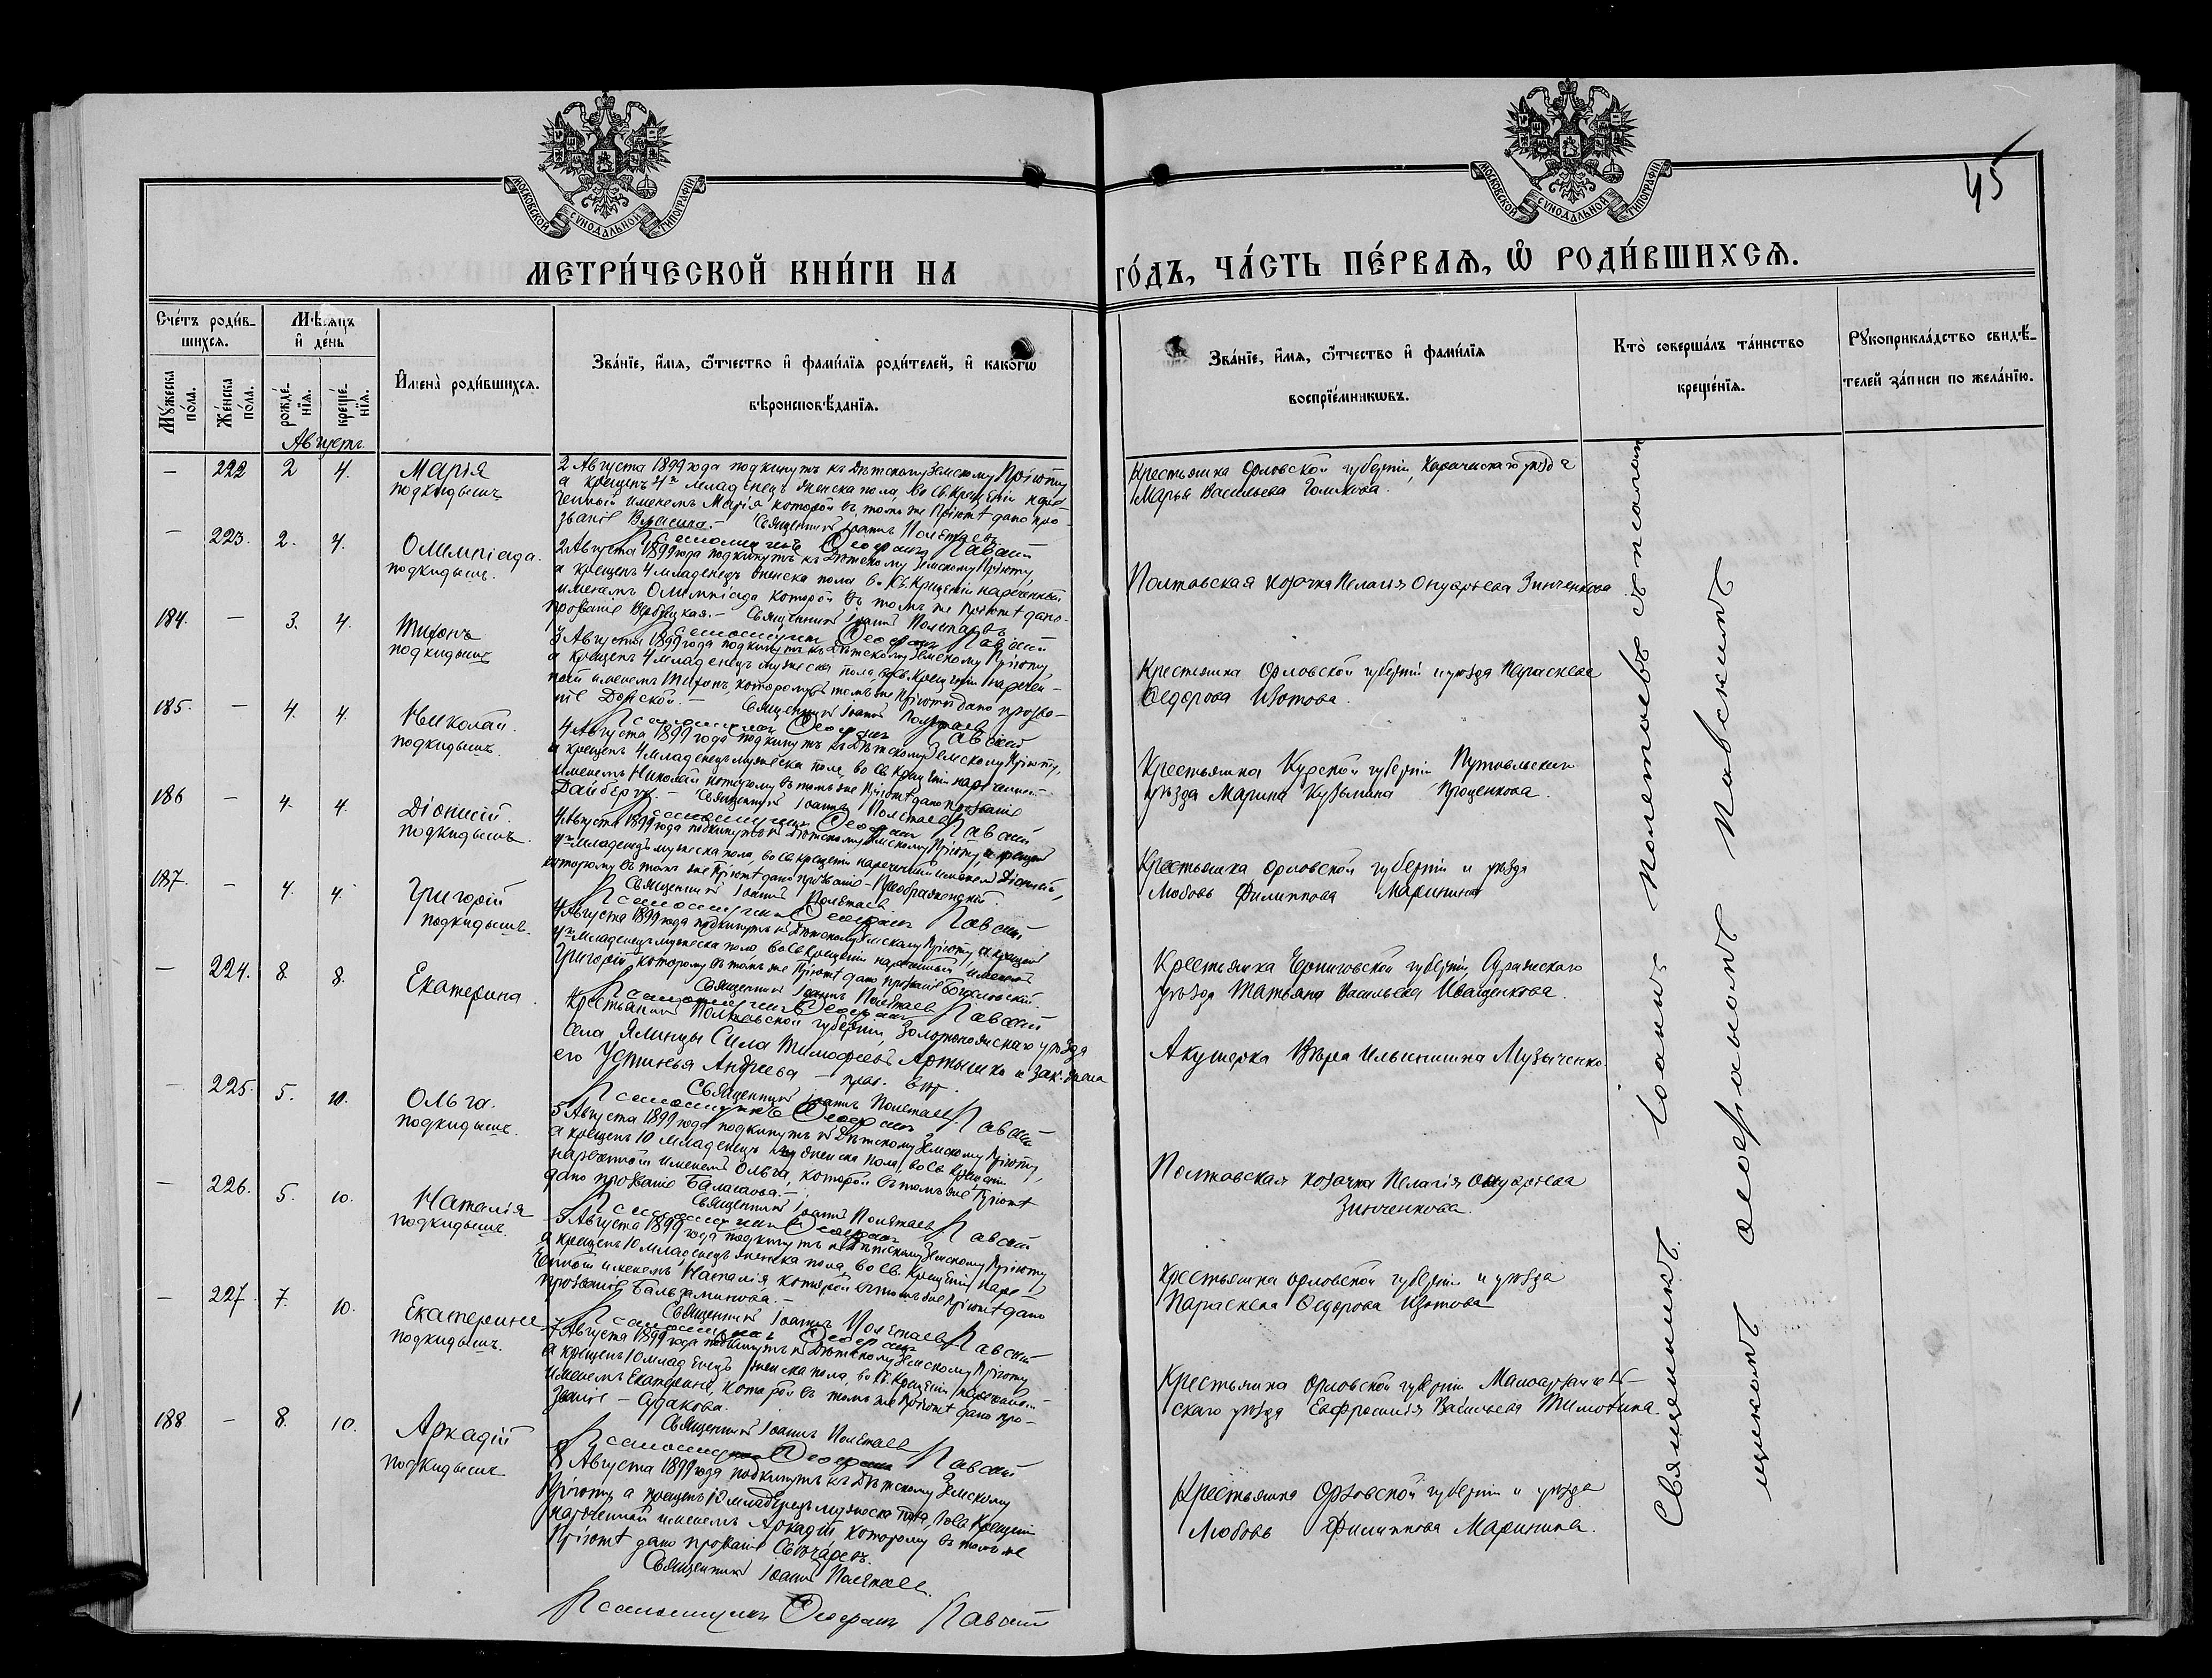 МОСКОВСКОЙ СѴНОДАЛЬНОЙ ТИПОГРАФІИ
МОСКОВСКОЙ СѴНОДАЛЬНОЙ ТИПОГРАФІИ
45
МЕТРИ́ЧЕСКОЙ КНИ́ГИ НА
ГО́ДЪ, ЧА́СТЬ ПЕ́РВАѦ, Ѽ РОДИ́ВШИХСѦ.
Сче́тъ роди́в-
шихсѧ.
Мѣсѧцъ
и҆ де́нь
Мꙋжеска по́ла.
Же́нска по́ла.
рожде́-нїѧ.
креще́-нїѧ.
И҆мена̀ роди́вшихсѧ.
Зва́нїе, и҆́мѧ, ѻ҆́тчество и҆ фами́лїѧ роди́телей, и҆ како́гѡ
вѣроисповѣ́данїѧ.
Зва́нїе, и҆́мѧ, ѻ҆́тчество и҆ фами́лїѧ
воспрїе́мникѡвъ.
Кто̀ соверша́лъ та́инство
креще́нїѧ.
Рꙋкоприкла́дство свидѣ́-
телей за́писи по жела́нїю.
Августъ.
— 222 2 4.
Марія
подкидышъ
2 Августа 1899 года подкинутъ къ Дѣтскому Земскому Пріюту
а крещенъ 4го младенецъ женска пола, во Св. Крещеніи наре-
ченный именемъ Марія которой въ томъ же Пріютѣ дано про-
званіе
Священникъ Іоаннъ Полетаевъ
Псаломщикъ Ѳеофанъ Павскій
Крестьянка Орловской губерніи, Карачевскаго уѣзда
Марья Васильева Голикова.
— 223. 2. 4.
Олимпіада.
подкидышъ.
2 Августа 1899 года подкинутъ къ Дѣтскому Земскому Пріюту,
а крещенъ 4 младенецъ женска пола во Св. Крещеніи нареченный
именемъ Олимпіада которой въ томъ же Пріютѣ дано
прозваніе Вербицкая. — Священникъ Іоаннъ Полетаевъ
Псаломщикъ Ѳеофанъ Павскій
Полтавская козачка Пелагія Онуфріева Зинченкова
184. — 3. 4.
Тихонъ
подкидышъ
3 Августа 1899 года подкинутъ къ Дѣтскому Земскому Пріюту
а крещенъ 4 младенецъ мужеска пола, во Св. Крещеніи наречен-
ный именемъ Тихонъ, которому въ томъ же Пріютѣ дано прозва-
ніе Донской. — Священникъ Іоаннъ Полетаевъ
Псаломщикъ Ѳеофанъ Павскій
Крестьянка Орловской губерніи и уѣзда Параскева
Ѳедорова Изотова.
185. — 4. 4.
Николай.
подкидышъ.
4 Августа 1899 года подкинутъ къ Дѣтскому Земскому Пріюту,
а крещенъ 4 младенецъ мужеска пола, во Св. Крещеніи нареченный
именемъ Николай которому въ томъ же Пріютѣ дано прозваніе
Священникъ Іоаннъ Полетаевъ
Псаломщикъ Ѳеофанъ Павскій
Крестьянка Курской губерніи Путивльскаго
уѣзда Марина Кузьмина Проценкова.
186 — 4. 4.
Діонисій.
подкидышъ.
4 Августа 1899 года подкинутъ къ Дѣтскому Земскому Пріюту, а крещенъ
4го младенецъ мужеска пола, во Св. Крещеніи нареченный именемъ Діонисій,
которому въ томъ же Пріютѣ дано прозваніе — Преображенскій.
Священникъ Іоаннъ Полетаевъ
Псаломщикъ Ѳеофанъ Павскій
Крестьянка Орловской губерніи и уѣзда
Любовь Филиппова Маринина
187. — 4. 4.
Григорій
подкидышъ.
4 Августа 1899 года подкинутъ къ Дѣтскому Земскому Пріюту, а крещенъ
4го младенецъ мужеска пола во Св. Крещеніи нареченный именемъ
Григорій которому въ томъ же Пріютѣ дано прозваніе Богословскій.
Священникъ Іоаннъ Полетаевъ
Псаломщикъ Ѳеофанъ Павскій
Крестьянка Черниговской губерніи, Суражскаго
уѣзда Татьяна Васильева Иващенкова.
— 224. 8. 8.
Екатерина.
Крестьянинъ Полтавской губерніи, Золотоношскаго уѣзда
села Ялинцы Сила Тимофеевъ Артышко и зак. жена
его Устинья Андреева — прав. вѣр.
Священникъ Іоаннъ Полетаевъ
Псаломщикъ Ѳеофанъ Павскій
Акушерка Вѣра Ильинишна Музыченко.
— 225. 5. 10.
Ольга.
подкидышъ.
5 Августа 1899 года подкинутъ къ Дѣтскому Земскому Пріюту,
а крещенъ 10 младенецъ женска пола, во Св. Крещеніи
нареченный именемъ Ольга, которой въ томъ же Пріютѣ
дано прозваніе Балашова. —
Священникъ Іоаннъ Полетаевъ
Псаломщикъ Ѳеофанъ Павскій
Полтавская козачка Пелагія Онуфріева
Зинченкова.
— 226. 5. 10.
Наталія
подкидышъ.
5 Августа 1899 года подкинутъ къ Дѣтскому Земскому Пріюту
а крещенъ 10 младенецъ женска пола, во Св. Крещеніи наре-
ченный именемъ Наталія которой въ томъ же Пріютѣ дано
прозваніе Бальзаминова. —
Священникъ Іоаннъ Полетаевъ
Псаломщикъ Ѳеофанъ Павскій
Крестьянка Орловской губерніи и уѣзда
Параскева Ѳедорова Изотова
— 227. 7. 10.
Екатерина
подкидышъ.
7 Августа 1899 года подкинутъ къ Дѣтскому Земскому Пріюту
а крещенъ 10 младенецъ женска пола, во Св. Крещеніи нареченный
именемъ Екатерина, которой въ томъ же Пріютѣ дано про-
званіе — Судакова.
Священникъ Іоаннъ Полетаевъ
Псаломщикъ Ѳеофанъ Павскій
Крестьянка Орловской губерніи Малоархангель-
скаго уѣзда Евфросинія Васильева Тимохина
188 — 8. 10.
Аркадій
подкидышъ
8 Августа 1899 года подкинутъ къ Дѣтскому Земскому
Пріюту а крещенъ 10 младенецъ мужеска пола, во Св. Крещеніи
нареченный именемъ Аркадій, которому въ томъ же
Пріютѣ дано прозваніе
Священникъ Іоаннъ Полетаевъ.
Псаломщикъ Ѳеофанъ Павскій
Крестьянка Орловской губерніи и уѣзда
Любовь Филиппова Маринина.
Священникъ Іоаннъ Полетаевъ съ псалом-
щикомъ Ѳеофаномъ Павскимъ